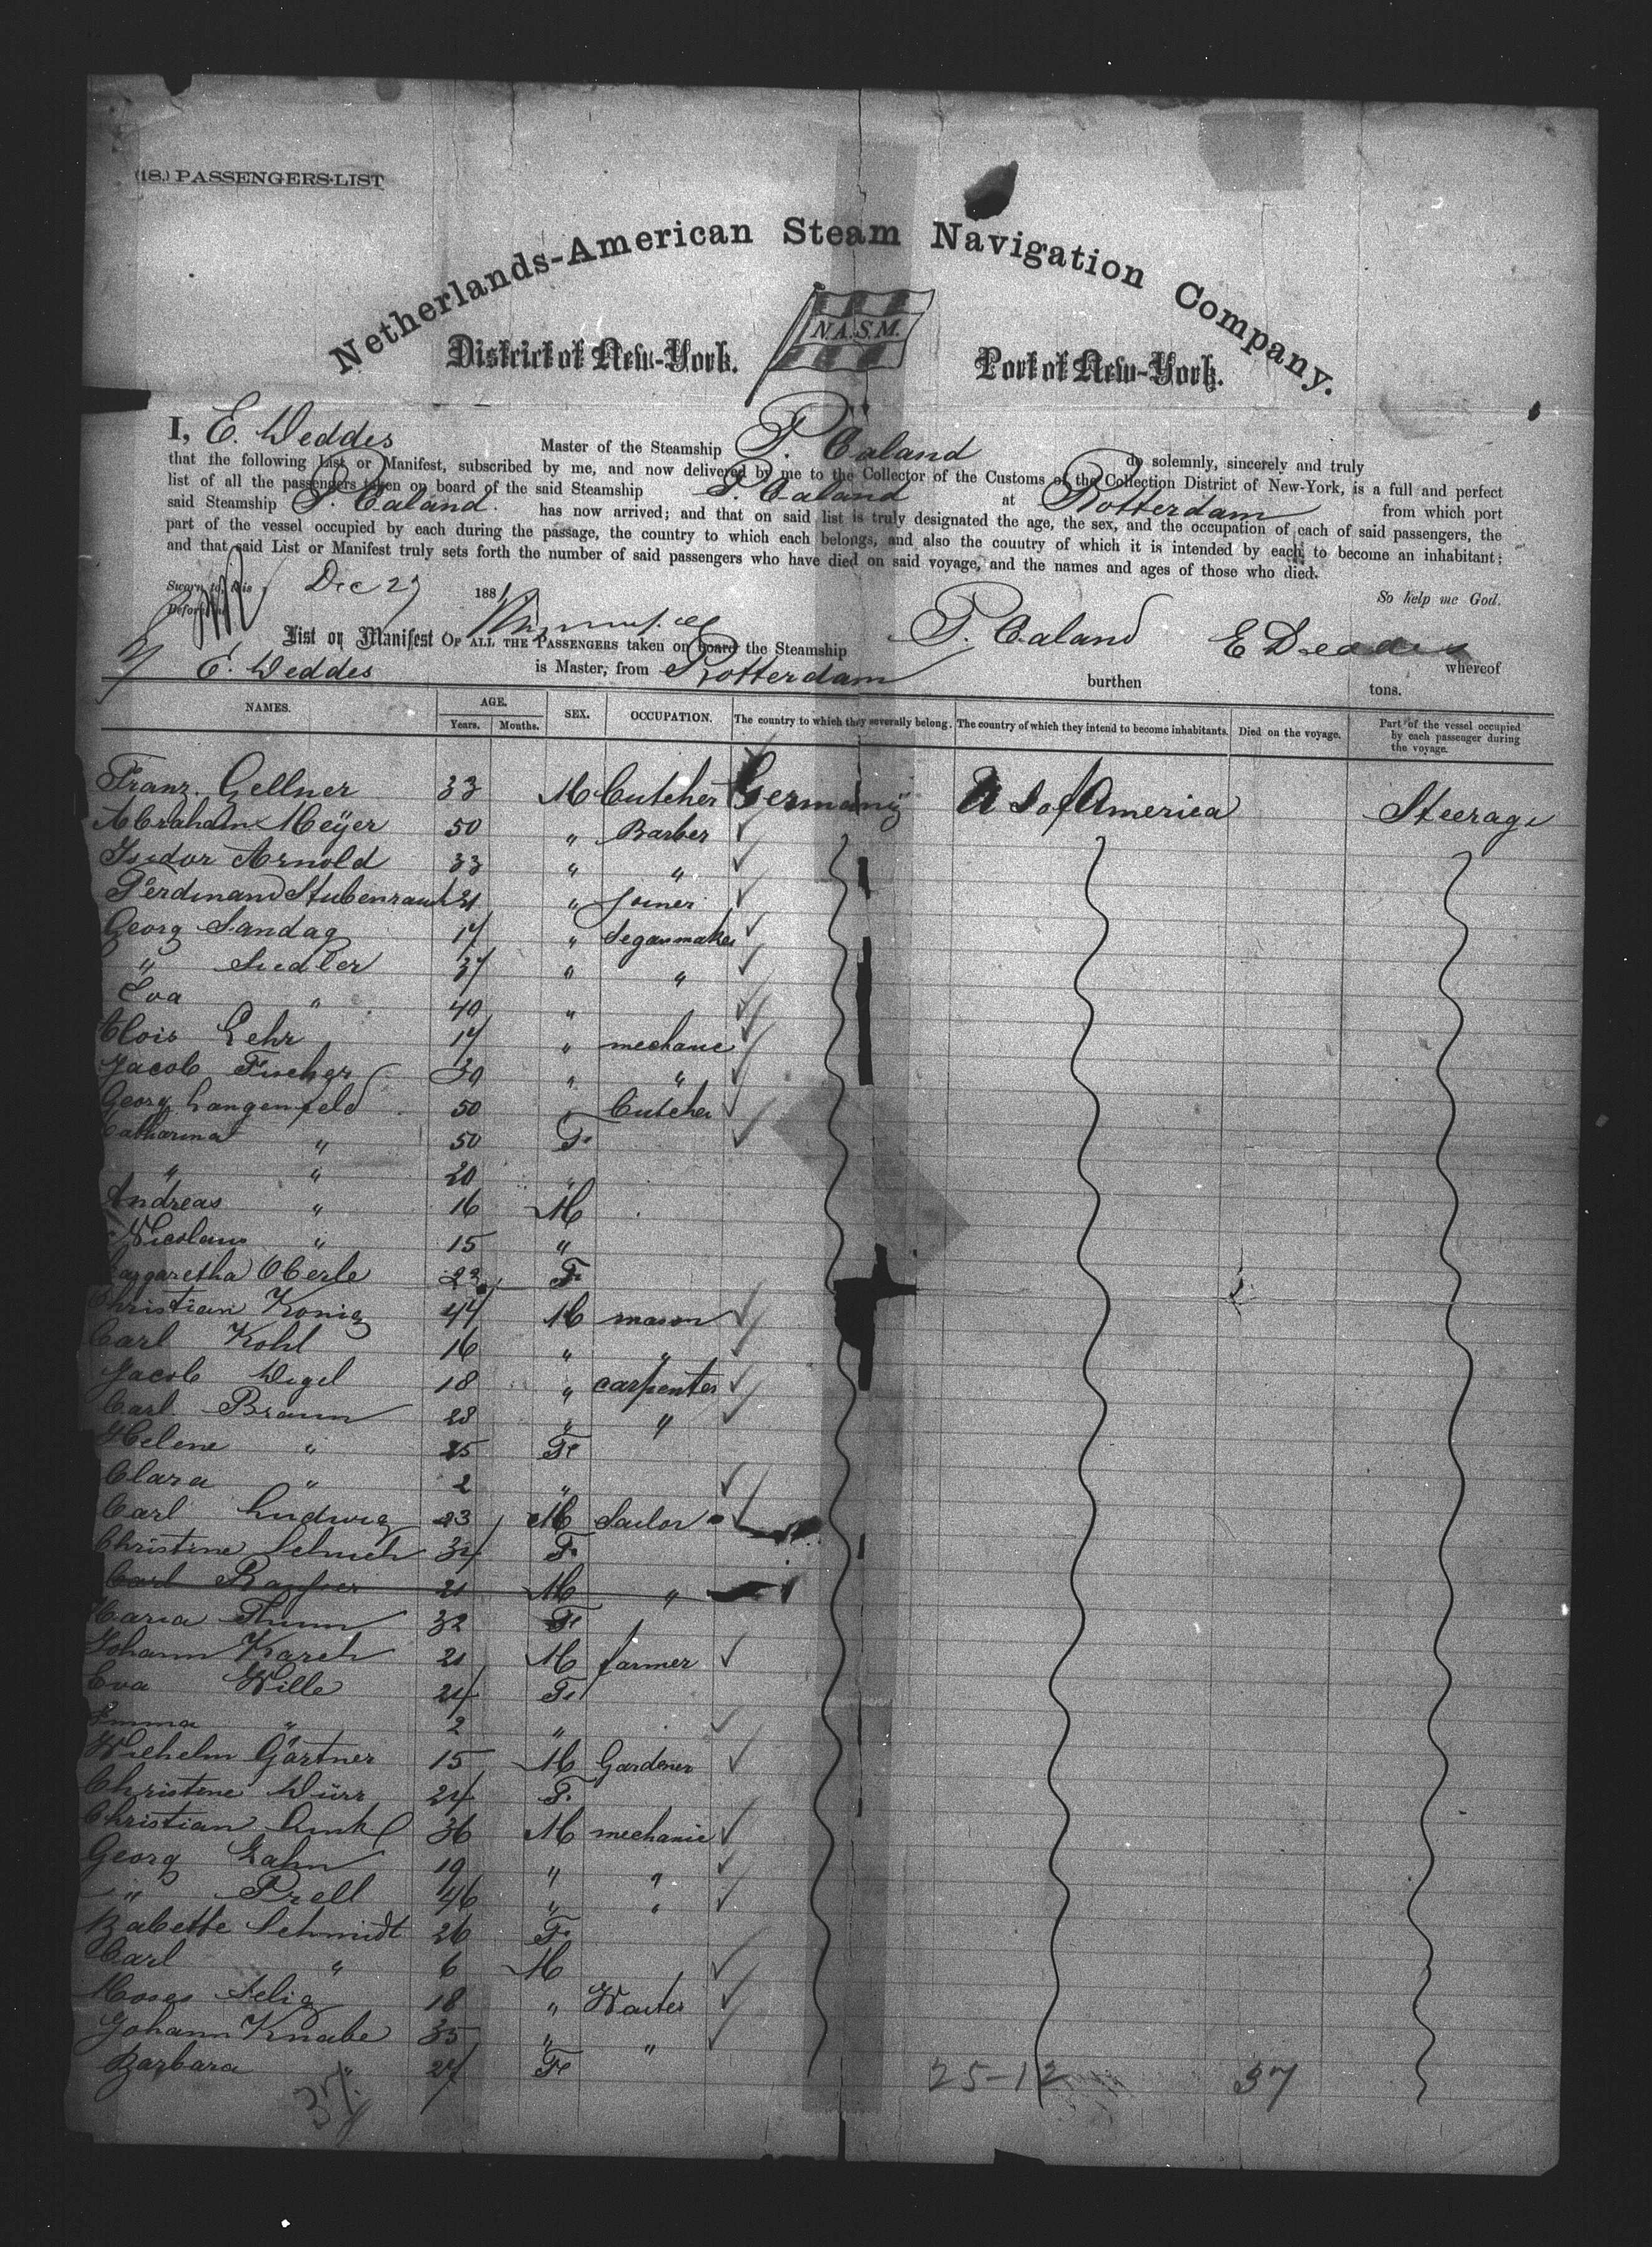 (18.) PASSENGERS-LIST
Netherlands-American Steam Navigation Company.
N.A.S.M.
District of New-York. Port of New-York.
I, E. Deddes Master of the Steamship P. Caland do solemnly, sincerely and truly
that the following List or Manifest, subscribed by me, and now delivered by me to the Collector of the Customs of the Collection District of New-York, is a full and perfect
list of all the passengers taken on board of the said Steamship P. Caland at Rotterdam from which port
said Steamship P. Caland. has now arrived; and that on said list is truly designated the age, the sex, and the occupation of each of said passengers, the
part of the vessel occupied by each during the passage, the country to which each belongs, and also the country of which it is intended by each to become an inhabitant;
and that said List or Manifest truly sets forth the number of said passengers who have died on said voyage, and the names and ages of those who died.
Sworn to, this Dec 27 1881 So help me God.
Before me
List or Manifest OF ALL THE PASSENGERS taken on board the Steamship P. Caland E Deddes whereof
E. Deddes is Master, from Rotterdam burthen tons.
NAMES. AGE. Years. Months. SEX. OCCUPATION. The country to which they severally belong. The country of which they intend to become inhabitants. Died on the voyage. Part of the vessel occupied by each passenger during the voyage.
Franz Gellner 33 M Butcher Germany U S of America Steerage
Abraham Meÿer 50 " Barber
Isidor Arnold 33 " "
Ferdinand Stubenrauch 21 " Joiner
Georg Sandag 17 " Segarmaker
" Siedler 37 " "
Eva " 40 "
Alois Lehr 17 " mechanic
Jacob Fischer 30 " "
Georg Langenfeld 50 " Butcher
Catharina " 50 F.
" " 20 "
Andreas " 16 M
Nicolaus " 15 "
Margaretha Oberle 23 F
Christian Konig 44 M mason
Carl Kohl 16 " "
Jacob Wigel 18 " carpenter
Carl Braun 28 " "
Helene " 25 F
Clara " 2 "
Carl Ludwig 23 M Sailor
Christine Schuch 34 F.
Carl 21 M "
Maria Thum 32 F
Johann Karch 21 M farmer
Eva Wille 24 F
Emma " 2 "
Wilhelm Gärtner 15 M Gardener
Christine Dürr 24 F.
Christian Link 36 M mechanic
Georg Zahn 19 " "
" Prell 46 " "
Babette Schmidt 26 F.
Carl " 6 M
Moses Selig 18 " Waiter
Johann Knabe 35 " "
Barbara " 27 F
37 25-12 37